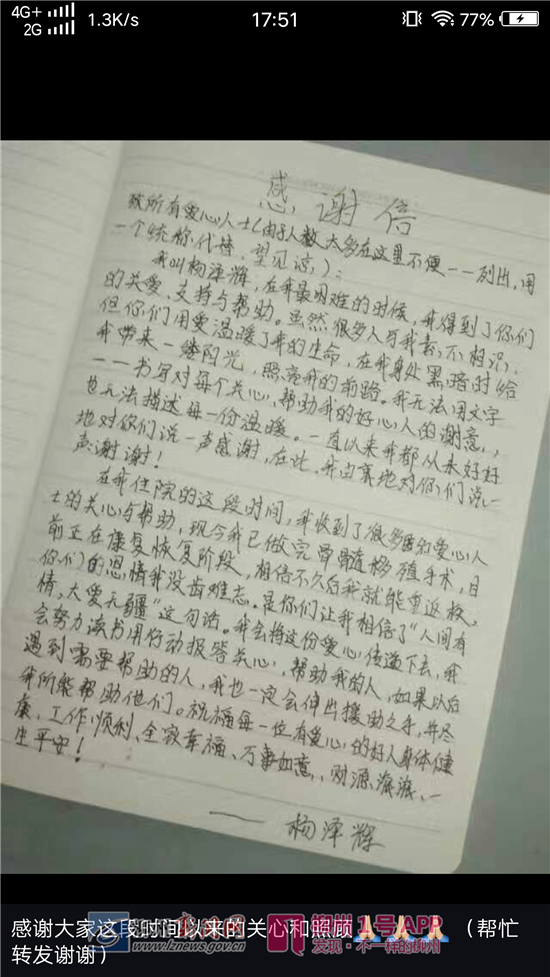 4G+ 1.3K/s 17:51 77%
2G
感谢信
致所有爱心人士(由于人数太多在这里不便一一列出,用
一个统称代替,望见谅):
我叫杨泽辉,在我最困难的时候,我得到了你们
的关爱、支持与帮助。虽然很多人与我素不相识,
但你们用爱温暖了我的生命,在我身处黑暗时给
我带来一缕阳光,照亮我的前路。我无法用文字
一一书写对每个关心、帮助我的好心人的谢意,
也无法描述每一份温暖。一直以来我都从未好好
地对你们说一声感谢,在此,我由衷地对你们说一
声:谢谢!
在我住院的这段时间,我收到了很多爱心人
士的关心与帮助,现今我已做完骨髓移殖手术,目
前正在康复恢复阶段,相信不久后我就能重返校,
你们的恩情我没齿难忘。是你们让我相信了"人间有
情,大爱无疆"这句话。我会将这份爱心传递下去,我
会努力读书用行动报答关心、帮助我的人,如果以后
遇到需要帮助的人,我也一定会伸出援助之手,并尽
我所能帮助他们。祝福每一位有爱心的好人身体健
康、工作顺利、全家幸福、万事如意、财源滚滚、一
生平安!
——杨泽辉
感谢大家这段时间以来的关心和照顾🙏🙏🙏(帮忙
转发谢谢)
www.lznews.gov.cn
柳州1号APP
发现·不一样的柳州